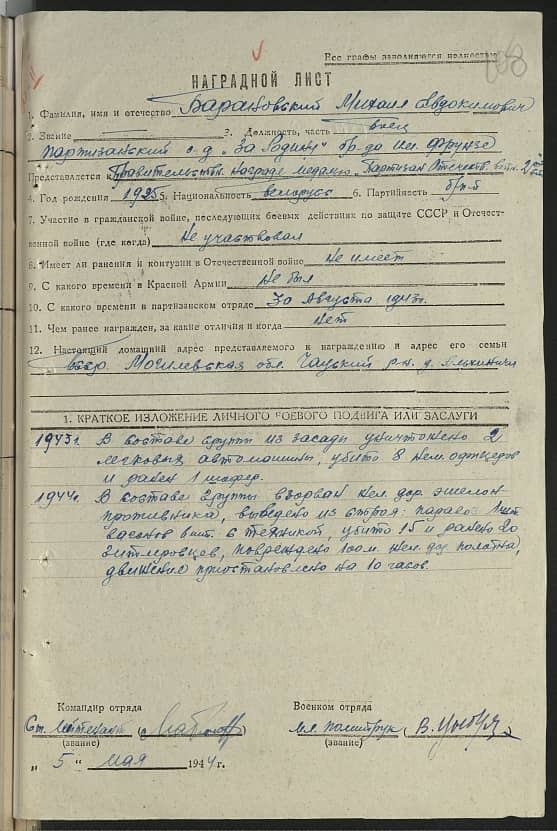 Все графы заполняются полностью
НАГРАДНОЙ ЛИСТ
1. Фамилия, имя и отчество Барановский Михаил Евдокимович
2. Звание 3. Должность, часть боец
партизанский о-д „За Родину" бр-да им. Фрунзе
Представляется к Правительств. награде медаль „Партизан Отечеств. войн." 2
4. Год рождения 1925 5. Национальность белорусс 6. Партийность б/п
7. Участие в гражданской войне, последующих боевых действиях по защите СССР и Отечест-
венной войне (где когда) Не участвовал
8. Имеет ли ранения и контузии в Отечественной войне Не имеет
9. С какого времени в Красной Армии Не был
10. С какого времени в партизанском отряде 30 Августа 1943г.
11. Чем ранее награжден, за какие отличия и когда нет
12. Настоящий домашний адрес представляемого к награждению и адрес его семьи
БССР Могилевская обл. Чаусский р-н д.
1. КРАТКОЕ ИЗЛОЖЕНИЕ ЛИЧНОГО БОЕВОГО ПОДВИГА ИЛИ ЗАСЛУГИ
1943г. В составе группы из засады уничтожено 2
легковых автомашины, убито 8 нем. офицеров
и ранен 1 шофер.
1944г. В составе группы взорван жел. дор. эшелон
противника, выведено из строя: паровоз 1 шт
вагонов 8 шт. с техникой, убито 15 и ранено 20
гитлеровцев, повреждено 100 м. жел. дор полотна,
движение приостановлено на 10 часов.
Командир отряда Военком отряда
Ст. лейтенант мл. политрук
(звание) (звание)
„ 5 " мая 1944 г.